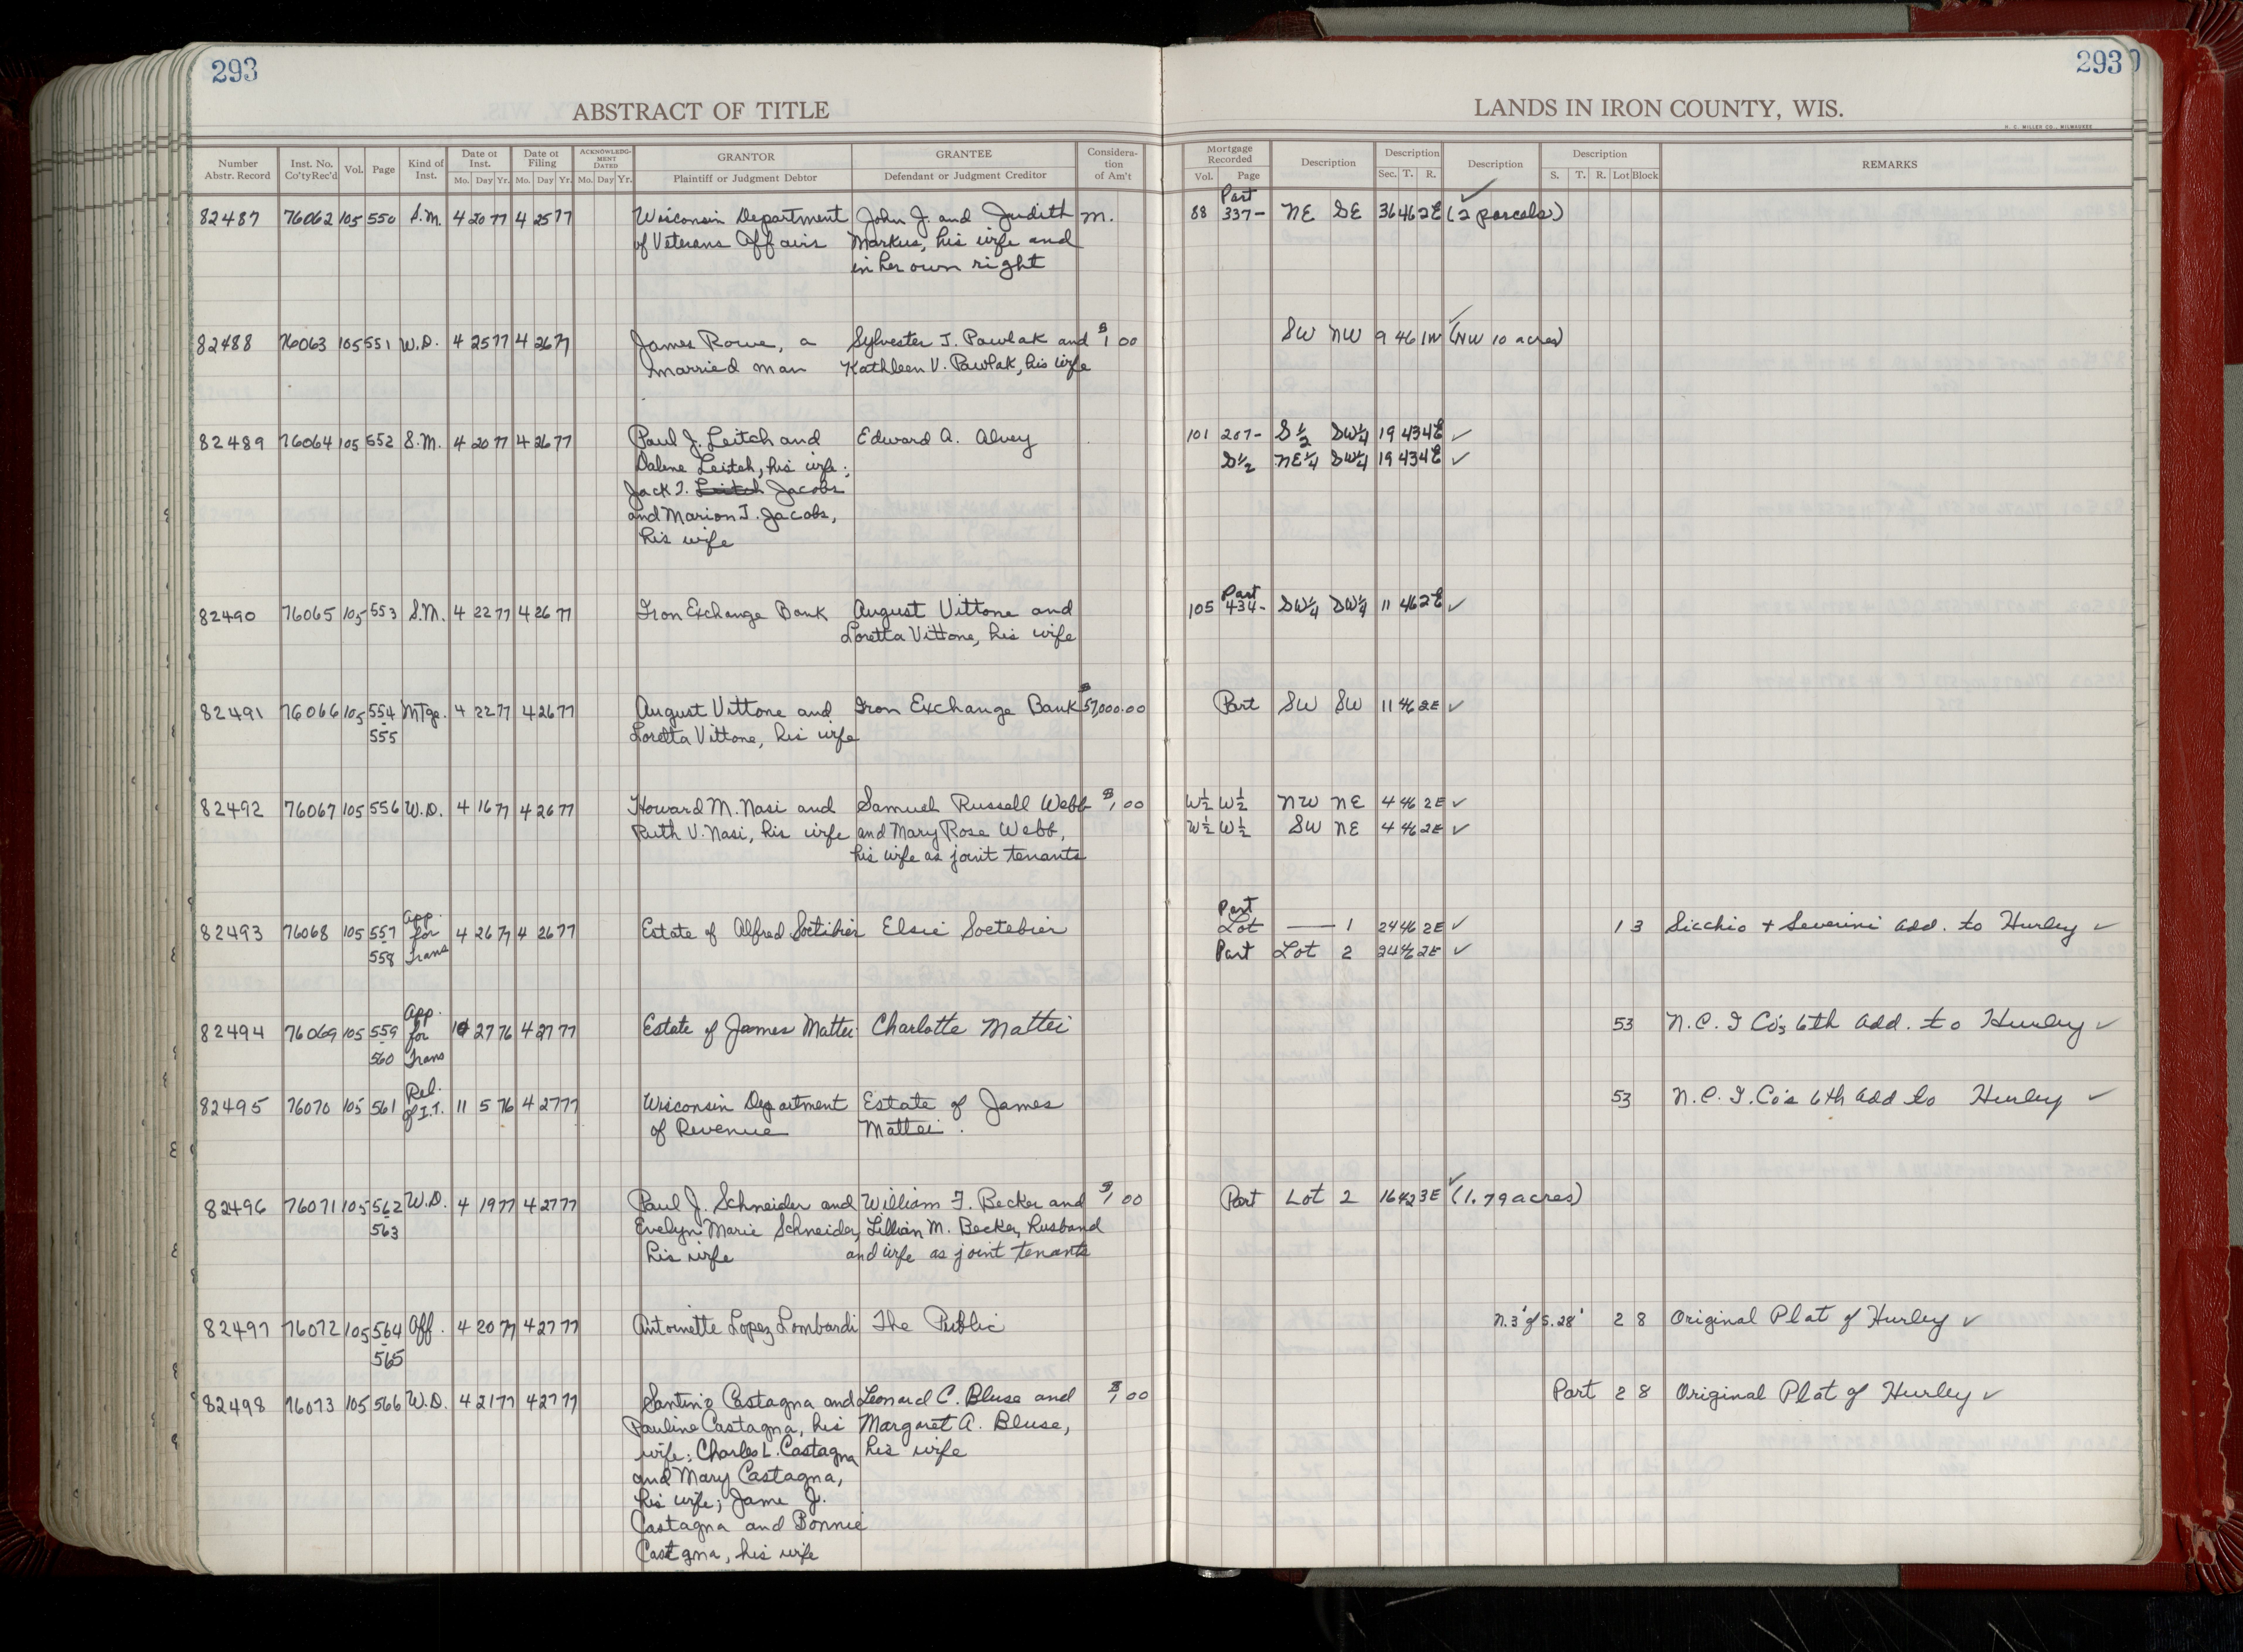 293
293
ABSTRACT OF TITLE
LANDS IN IRON COUNTY, WIS.
H. C. MILLER CO., MILWAUKEE
Number Abstr. Record | Inst. No. Co'ty Rec'd | Vol. | Page | Kind of Inst. | Date of Inst. Mo. Day Yr. | Date of Filing Mo. Day Yr. | ACKNOWLEDGMENT DATED Mo. Day Yr. | GRANTOR Plaintiff or Judgment Debtor | GRANTEE Defendant or Judgment Creditor | Consideration of Am't | Mortgage Recorded Vol. Page | Description | Description Sec. T. R. | Description | Description S. T. R. Lot Block | REMARKS
Part
82487 76062 105 550 S.M. 4 20 77 4 25 77 Wisconsin Department John J. and Judith M. 88 337- NE SE 36 46 2E (2 parcels) ✓
of Veterans Affairs Markus, his wife and
in her own right
82488 76063 105 551 W.D. 4 25 77 4 26 77 James Rowe, a Sylvester J. Pawlak and $1 00 SW NW 9 46 1W (NW 10 acres) ✓
married man Kathleen V. Pawlak, his wife
82489 76064 105 552 S.M. 4 20 77 4 26 77 Paul J. Leitch and Edward A. Alvey 101 207- S½ SW¼ 19 43 4E ✓
Dalene Leitch, his wife; S½ NE¼ SW¼ 19 43 4E ✓
Jack I. Leitch Jacobs
and Marion J. Jacobs,
his wife
Part
82490 76065 105 553 S.M. 4 22 77 4 26 77 Iron Exchange Bank August Vittone and 105 434- SW¼ SW¼ 11 46 2E ✓
Loretta Vittone, his wife
82491 76066 105 554 Mtge. 4 22 77 4 26 77 August Vittone and Iron Exchange Bank $57,000.00 Part SW SW 11 46 2E ✓
- 555 Loretta Vittone, his wife
82492 76067 105 556 W.D. 4 16 77 4 26 77 Howard M. Nasi and Samuel Russell Webb $1 00 W½ W½ NW NE 4 46 2E ✓
Ruth V. Nasi, his wife and Mary Rose Webb, W½ W½ SW NE 4 46 2E ✓
his wife as joint tenants
App. Part
82493 76068 105 557 for 4 26 77 4 26 77 Estate of Alfred Soetebier Elsie Soetebier Lot — 1 24 46 2E ✓ 1 3 Sicchio + Severini Add. to Hurley ✓
- 558 Trans Part Lot 2 24 46 2E ✓
App.
82494 76069 105 559 for 10 27 76 4 27 77 Estate of James Mattei Charlotte Mattei 53 N.C. I Co's 6th Add. to Hurley ✓
- 560 Trans
Rel.
82495 76070 105 561 of I.T. 11 5 76 4 27 77 Wisconsin Department Estate of James 53 N.C. I. Co's 6th Add to Hurley ✓
of Revenue Mattei.
82496 76071 105 562 W.D. 4 19 77 4 27 77 Paul J. Schneider and William F. Becker and $1 00 Part Lot 2 16 42 3E (1.79 acres) ✓
- 563 Evelyn Marie Schneider, Lillian M. Becker, husband
his wife and wife as joint tenants
82497 76072 105 564 Aff. 4 20 77 4 27 77 Antoinette Lopez Lombardi The Public N. 3' of S. 28' 2 8 Original Plat of Hurley ✓
- 565
82498 76073 105 566 W.D. 4 21 77 4 27 77 Santino Castagna and Leonard C. Bluse and $1 00 Part 2 8 Original Plat of Hurley ✓
Pauline Castagna, his Margaret A. Bluse,
wife; Charles L. Castagna his wife
and Mary Castagna,
his wife; Jame J.
Castagna and Bonnie
Castgna, his wife